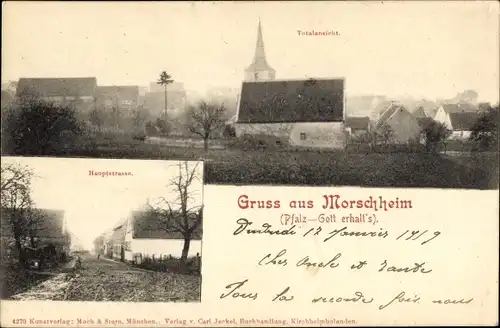 Totalansicht.
Hauptstrasse.
Gruss aus Morschheim
(Pfalz-Gott erhalt's).
17 Janvier 1919
Cher Oncle et Tante
la seconde fois nous
4279 Kunstverlag: Moch & Stern, München. Verlag v. Carl Jeckel, Buchhandlung, Kirchheimbolanden.